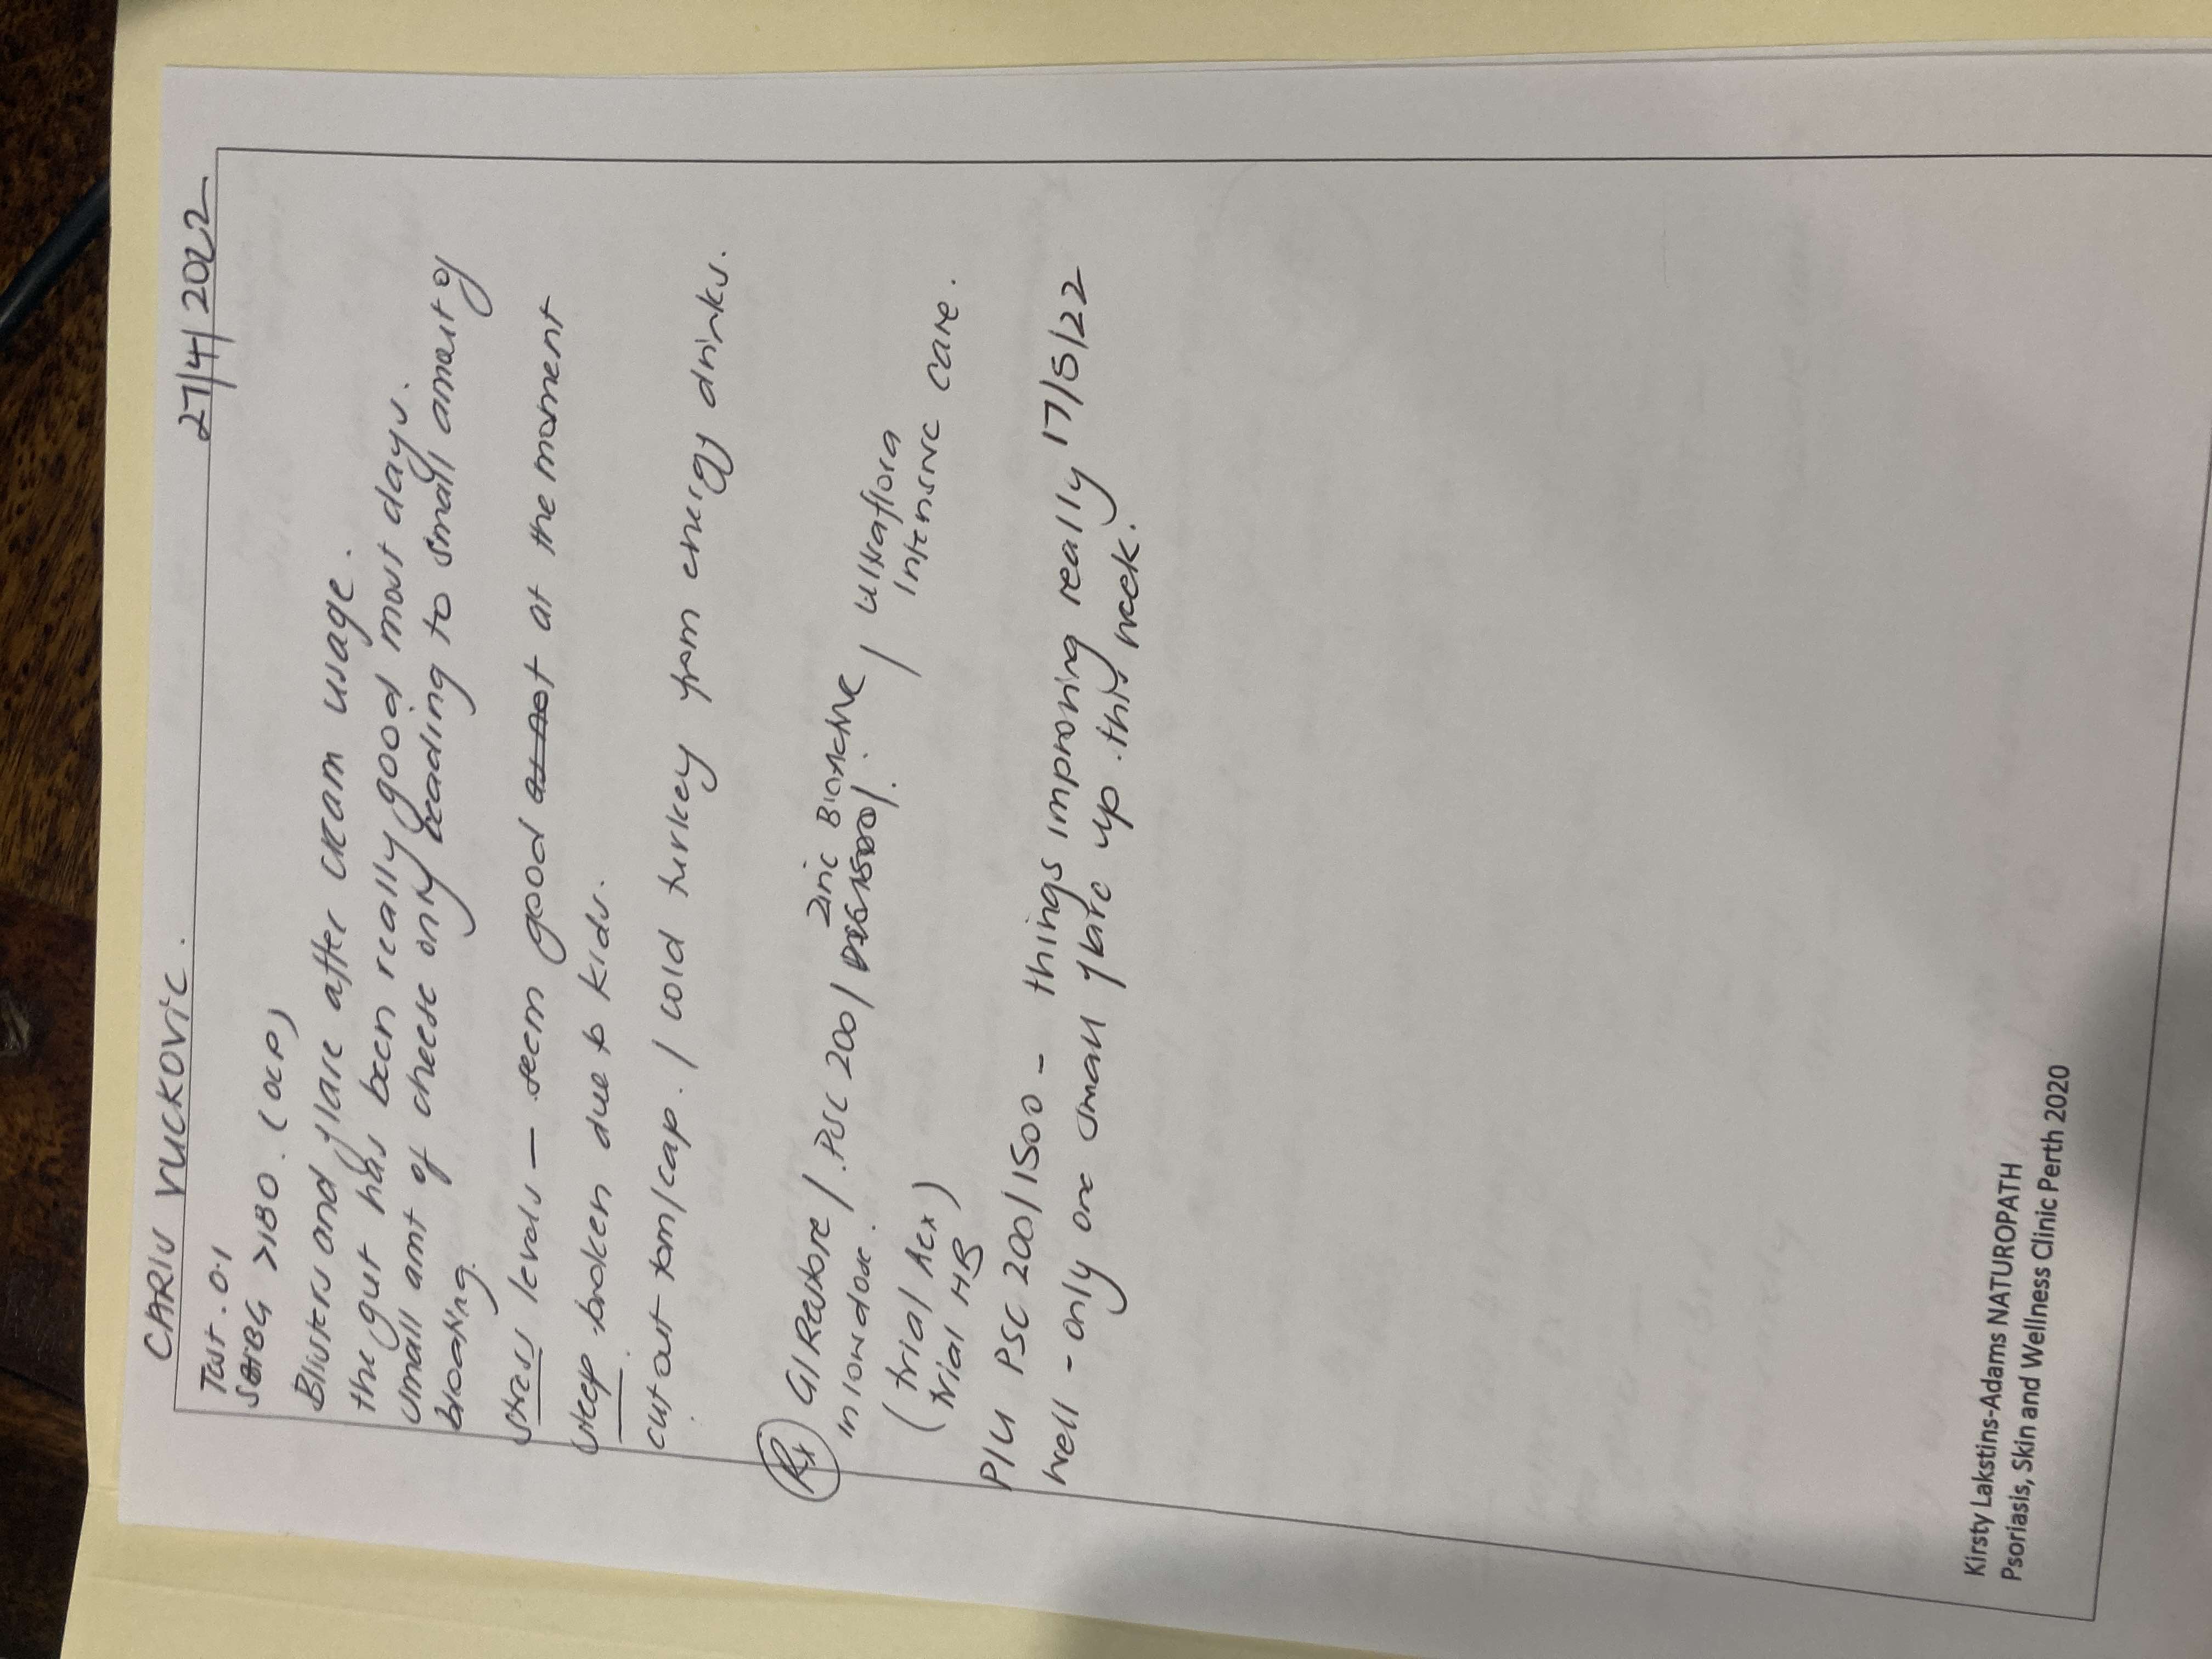 CARIS VUCKOVIC. 27/4/2022
Test. 0.1
SHBG >180. (OCP)
Blisters and flare after cream usage.
the gut has been really good most days.
small amt of cheese only leading to small amount of
bloating.
stress levels - seem good at the moment
sleep - broken due to kids.
cut out tom/cap. / cold turkey from energy drinks.
Rx GI Restore / PSC 200 / Zinc Bioactive / ultraflora
in low dose. Intensive care.
(trial Aex)
trial HB
P/U PSC 200/1500 - things improving really 17/5/22
well - only one small flare up this week.
Kirsty Lakstins-Adams NATUROPATH
Psoriasis, Skin and Wellness Clinic Perth 2020